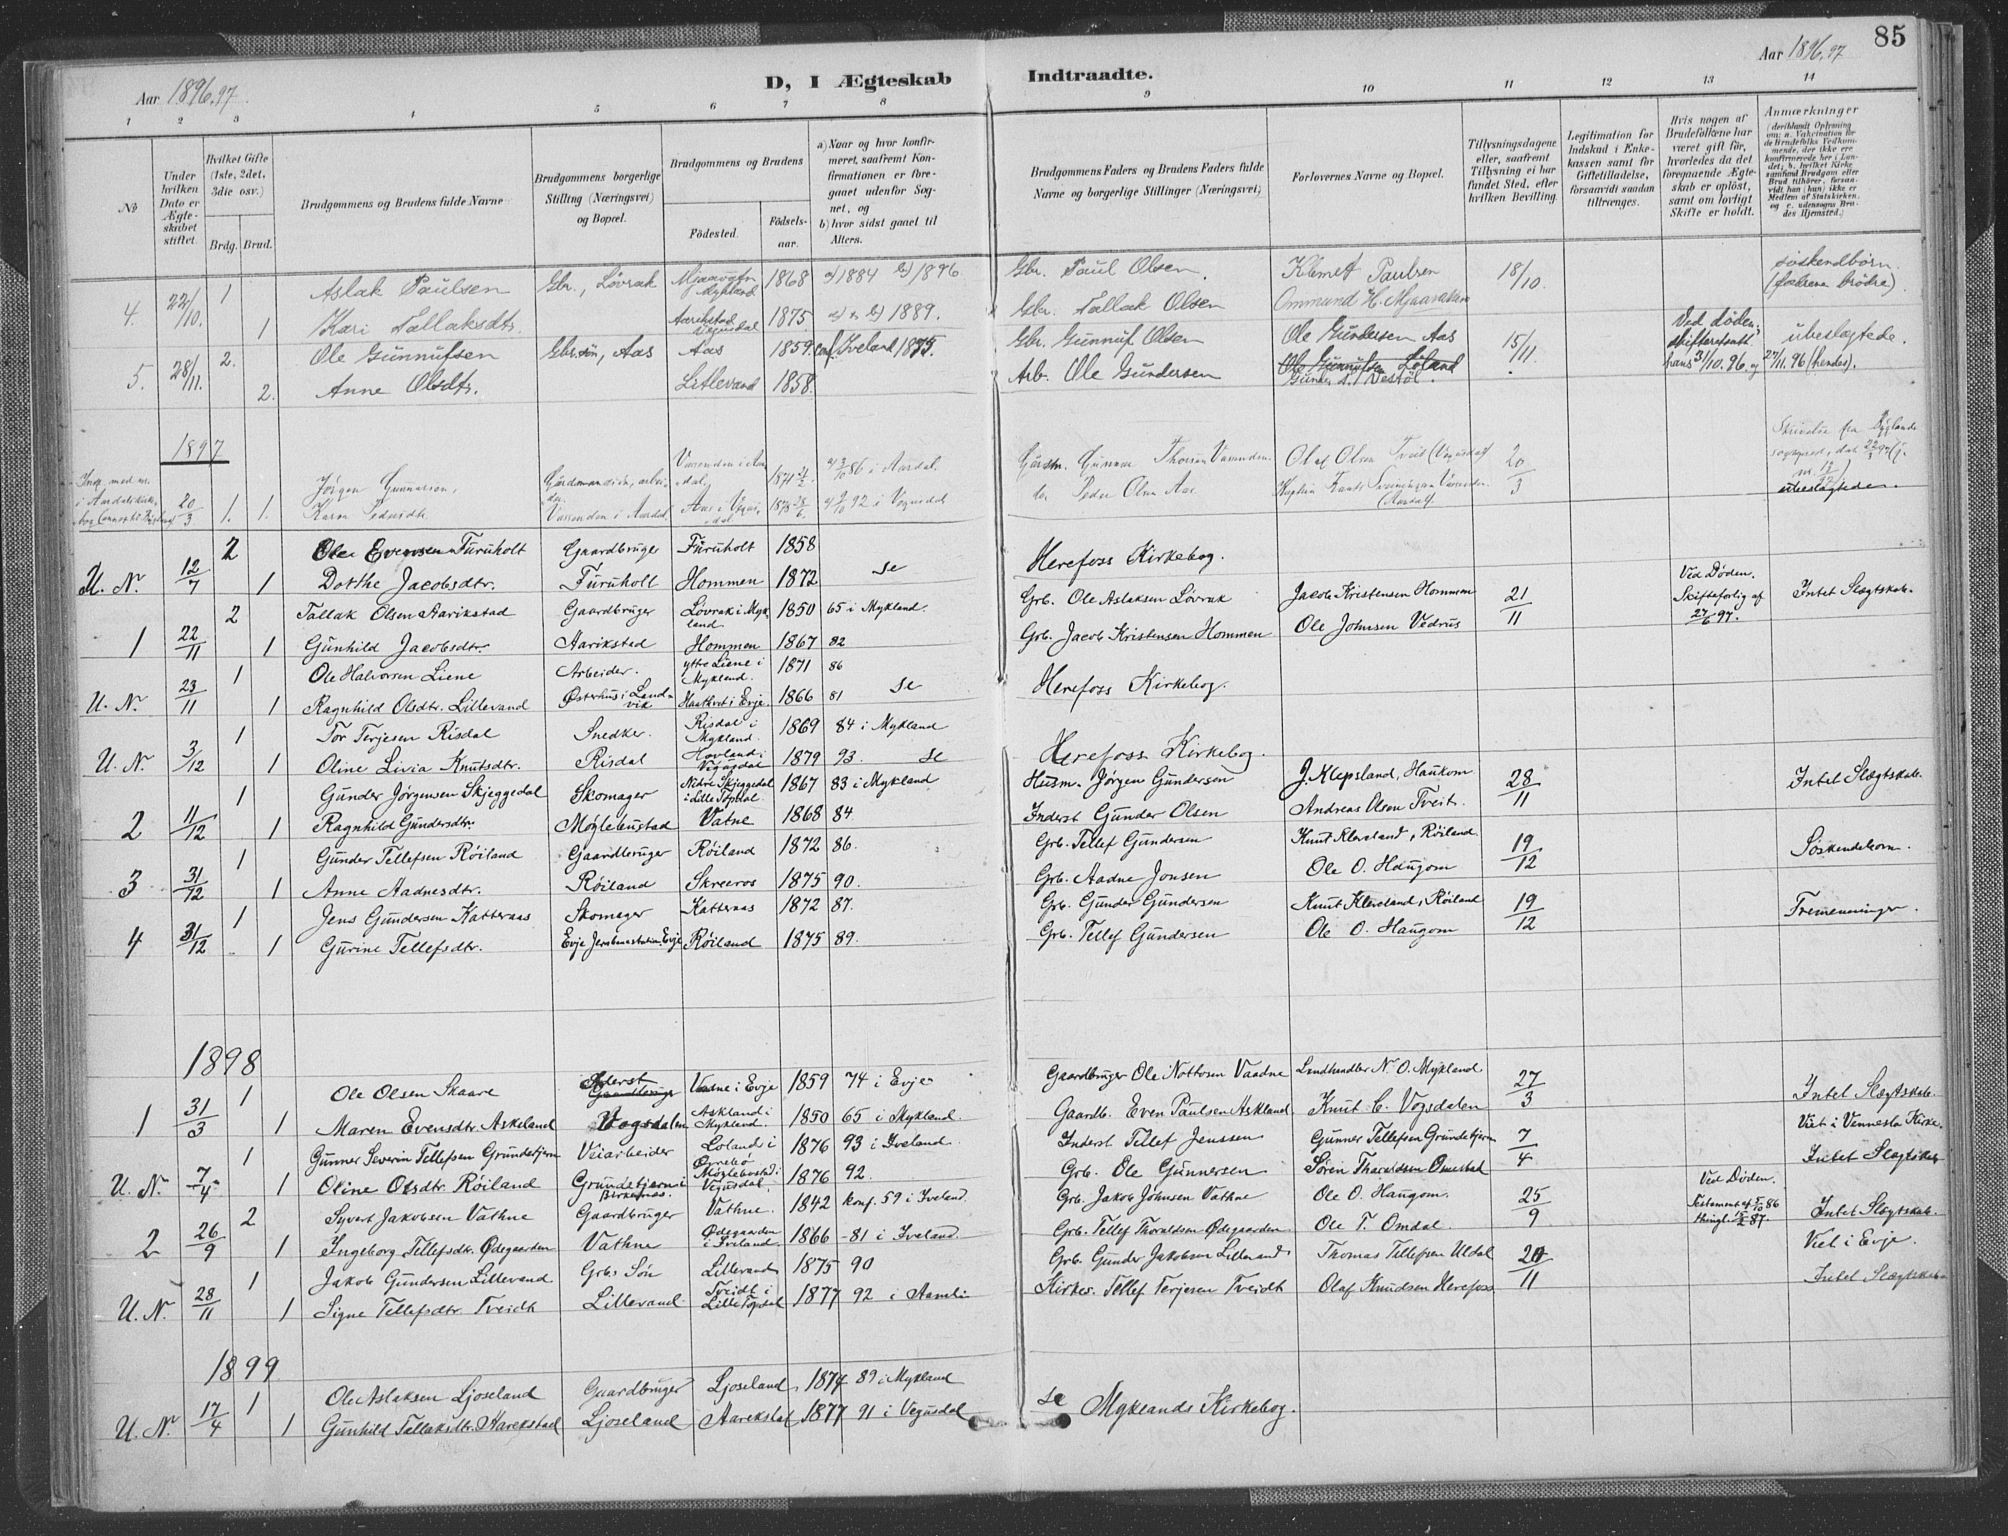 85
Aar 1896.97
Aar 1896.97
D, I Ægteskab Indtraadte.
1 2 3 4 5 6 7 8 9 10 11 12 13 14
No
Under hvilken Dato er Ægteskabet stiftet.
Hvilket Gifte (1ste, 2det, 3die osv.)
Brdg. Brud.
Brudgommens og Brudens fulde Navne
Brudgommens borgerlige Stilling (Næringsvei) og Bopæl.
Brudgommens og Brudens
Fødested. Fødselsaar.
a) Naar og hvor konfirmeret, saafremt Konfirmationen er foregaaet udenfor Sognet, og
b) hvor sidst gaaet til Alters.
Brudgommens Faders og Brudens Faders fulde Navne og borgerlige Stillinger (Næringsvei)
Forlovernes Navne og Bopæl.
Tillysningsdagene eller, saafremt Tillysning ei har fundet Sted, efter hvilken Bevilling.
Legitimation for Indskud i Enkekassen samt for Giftetilladelse, forsaavidt saadan tiltrænges.
Hvis nogen af Brudefolkene har været gift før, hvorledes da det foregaaende Ægteskab er opløst, samt om lovligt Skifte er holdt.
Anmærkninger
4. 22/10. 1 Aslak Paulsen Gbr., Løvrak Mykland 1868 a) 1884 b) 1896. Gbr. Paul Olsen. Klemet Paulsen 18/10. Søskendbørn.
1 Kari Tallaksdtr. Aarikstad Vegusdal 1875 1889. Gbr. Tallak Olsen Ommund H. (fædrene brødre).
5. 28/11. 2. Ole Gunnufsen Gbr.søn, Aas Aas 1859. conf. Iveland 1875. Gbr. Gunnuf Olsen Ole Gundersen Aas 15/11. Ved døden; ubeslægtede.
2. Anne Olsdtr. Litlevand 1858. Arb. Ole Gundersen Ole Gunnufsen Løland hans 31/10. 96. og 27/11. 96 (hendes).
1897
20/3 1. Jørgen Gunnarson, Vassenden i Aardal, 1871 86 i Aardal. Gunnar Thorson Olaf Olsen Tveit (Vegusdal) 20/3 Skrivelse fra Bygland
1. Karen Pedersdtr. Vassenden i Aardal Aas i Vegusdal 92 i Vegusdal Peder Olsen Aas ubeslægtede.
U. N. 12/7 2 Ole Evensen Furuholt Gaardbruger Furuholt 1858 Herefoss Kirkebog.
1 Dorthe Jacobsdtr. Furuholt Hommen 1872 Se
1 22/11 2 Tallak Olsen Aarikstad Gaardbruger Løvrak i Mykland 1850 65 i Mykland. Grb. Ole Aslaksen Løvrak Jacob Kristensen Hommen 21/11 Ved Døden. Skifteforlig af 27/6 97. Intet Slægtskab.
1 Gunhild Jacobsdtr. Aarikstad Hommen 1867 82 Grb. Jacob Kristensen Hommen Ole Johnsen Vedrus
U. N. 23/11 1 Ole Halvorsen Liene Arbeider. yttre Liene i Mykland. 1871 86 Se Herefoss Kirkebog.
1 Ragnhild Olsdtr. Lillevand Østerhus i Landvik i Evje 1866 81
U. N. 3/12 1 Tor Terjesen Risdal Snedker. Risdal i Mykland. 1869 84 i Mykland Herefoss Kirkebog.
1 Oline Livia Knutsdtr. Risdal Hovland i Vegusdal 1879 93. Se
2 11/12 1 Gunder Jørgensen Skjeggedal Skomager Nedre Skjeggedal i Lille Topdal 1867 83 i Mykland Husm. Jørgen Gundersen J. Klepsland, Haukom 28/11 Intet Slægtskab.
1 Ragnhild Gundersdtr. Møglebustad Vatne 1868 84 Inderst Gunder Olsen Andreas Olsen Tveit.
3 31/12 1 Gunder Tellefsen Røiland Gaardbruger Røiland 1872 86. Grb. Tellef Gundersen Knut Kleveland, Røiland 19/12 Søskendebørn.
1 Anne Aadnesdtr. Røiland Skreeros 1875 90. Grb. Aadne Jonsen Ole O. Haugom
4 31/12 1 Jens Gundersen Katteraas Skomager Katteraas 1872 87. Grb. Gunder Gundersen Knut Kleveland, Røiland 19/12 Tremenninger.
1 Gurine Tellefsdtr. Evje Jernbanestation, Evje Røiland 1875 89. Grb. Tellef Gundersen Ole O. Haugom
1898
1 31/3 1 Ole Olsen Skaare Inderst Gaardbruger Vadne i Evje 1859 74 i Evje Gaardbruger Ole Nottosen Vaadne Landhandler N. O. Mykland 27/3 Intet Slægtskab.
1 Maren Evensdtr. Askeland Vogsdalen Askland i Mykland. 1850 65 i Mykland. Gaardb. Even Paulsen Askland Knut C. Vogsdalen
U. N. 7/4 1 Gunner Severin Tellefsen Grundetjern Veiarbeider Loland i Øvrebø 1876 93 i Iveland. Inderst Tellef Jenssen Gunner Tellefsen Grundetjern 7/4 Viet i Vennesla Kirke.
1 Oline Olsdtr. Røiland Grundetjern i Birkenæs. Møglebustad i Vegusdal. 1876 92. Grb. Ole Gunnersen Søren Tharaldsen Omestad Intet Slægtskab
2 26/9 2 Syvert Jakobsen Vathne Gaardbruger Vathne. 1842 konf. 59 i Iveland. Grb. Jakob Johnsen Vathne Ole O. Haugom. 25/9 Ved Døden. Testament af 5/10 86 thinglæst 87. Intet Slægtskab.
1 Ingeborg Tellefsdtr. Ødegaarden Vathne Ødegaarden i Iveland. 1866 81 i Iveland Grb. Tellef Thoraldsen Ødegaarden Ole T. Omdal
U. N. 28/11 1 Jakob Gundersen Lillevand Grb.s Søn Lillevand 1875 90 Grb. Gunder Jakobsen Lillevand Thomas Tellefsen Uldal 20/11 Viet i Evje.
1 Signe Tellefsdtr. Tveidt Lillevand Tveidt i Lille Topdal 1877 92 i Aamli Kirkes. Tellef Terjesen Tveidt Olaf Knudsen Herefoss Intet Slægtskab
1899
U. N. 17/4 1 Ole Aslaksen Ljoseland Gaardbruger Ljoseland 1874 89 i Mykland se Myklands Kirkebog.
1 Gunhild Tallaksdtr. Aarekstad Ljoseland Aarekstad 1877 91 i Vegusdal